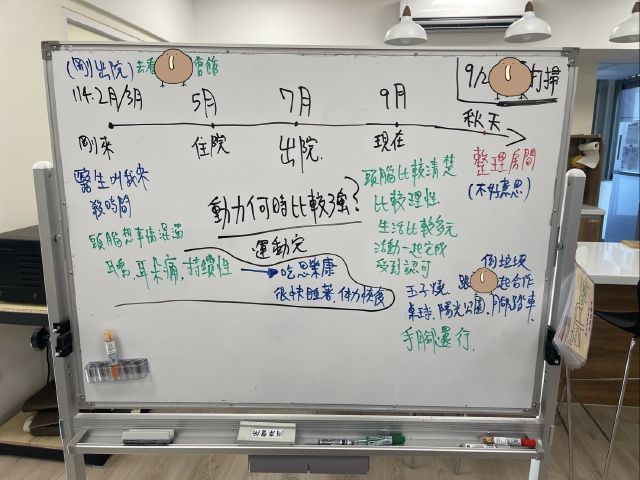 (剛出院)去看
會館
9/2
打掃
114.2月/3月
5月
7月
9月
秋天
剛來
住院
出院
現在
醫生叫我來
殺時間
動力何時比較強?
頭腦比較清楚
比較理性
生活比較多元
活動一起完成
受到認可
整理房間
(不好意思)
頭腦想事情混濁
運動完
吃思樂康
很快睡著,體力恢復
倒垃圾
玉子燒
起合作
桌球,陽光公園,腳踏車
手腳還行